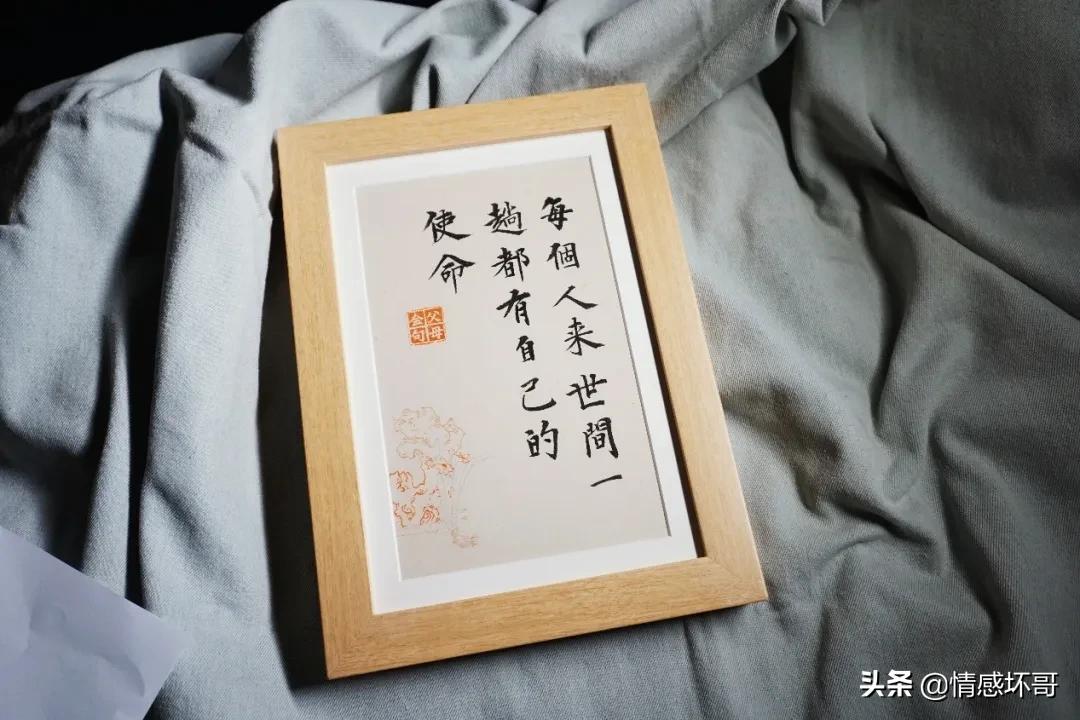 每個人来世間一
趟都有自己的
使命
父母
金句
头条 @情感坏哥